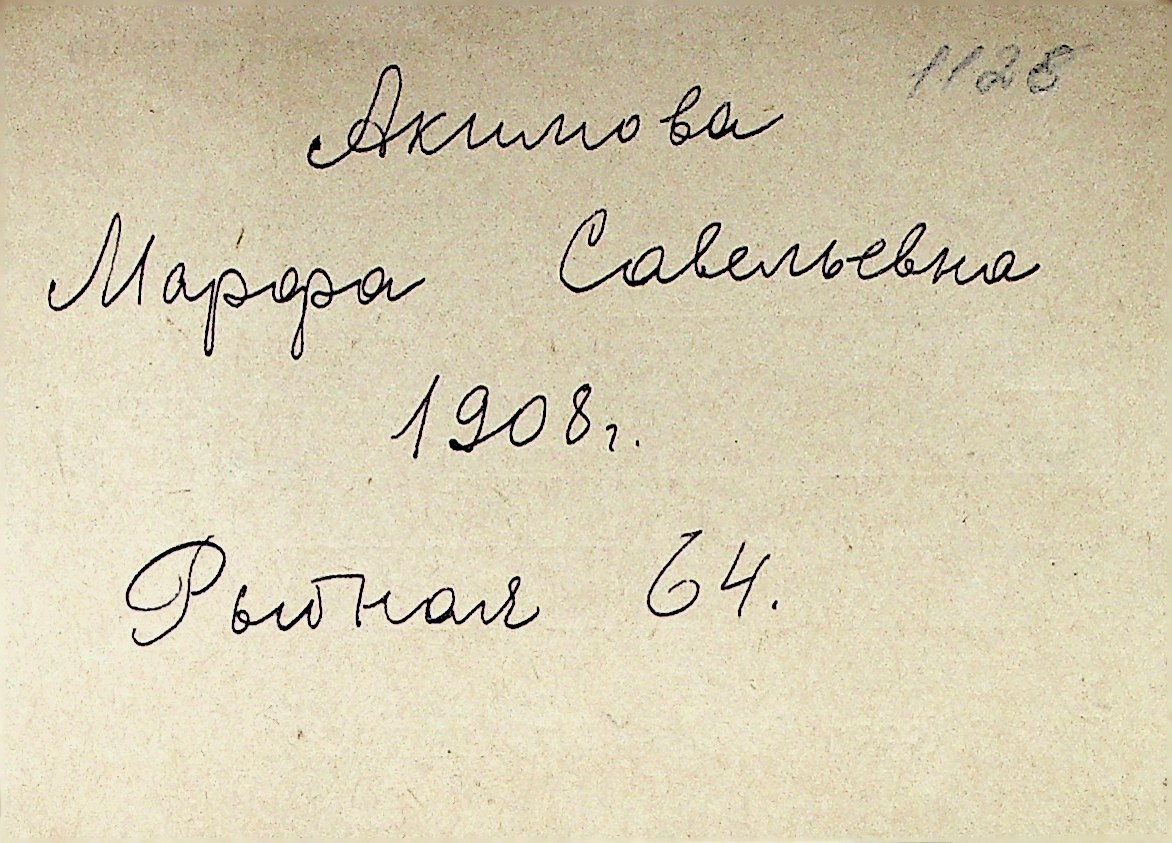 1128
Акимова
Марфа Савельевна
1908г.
Рыбная 64.